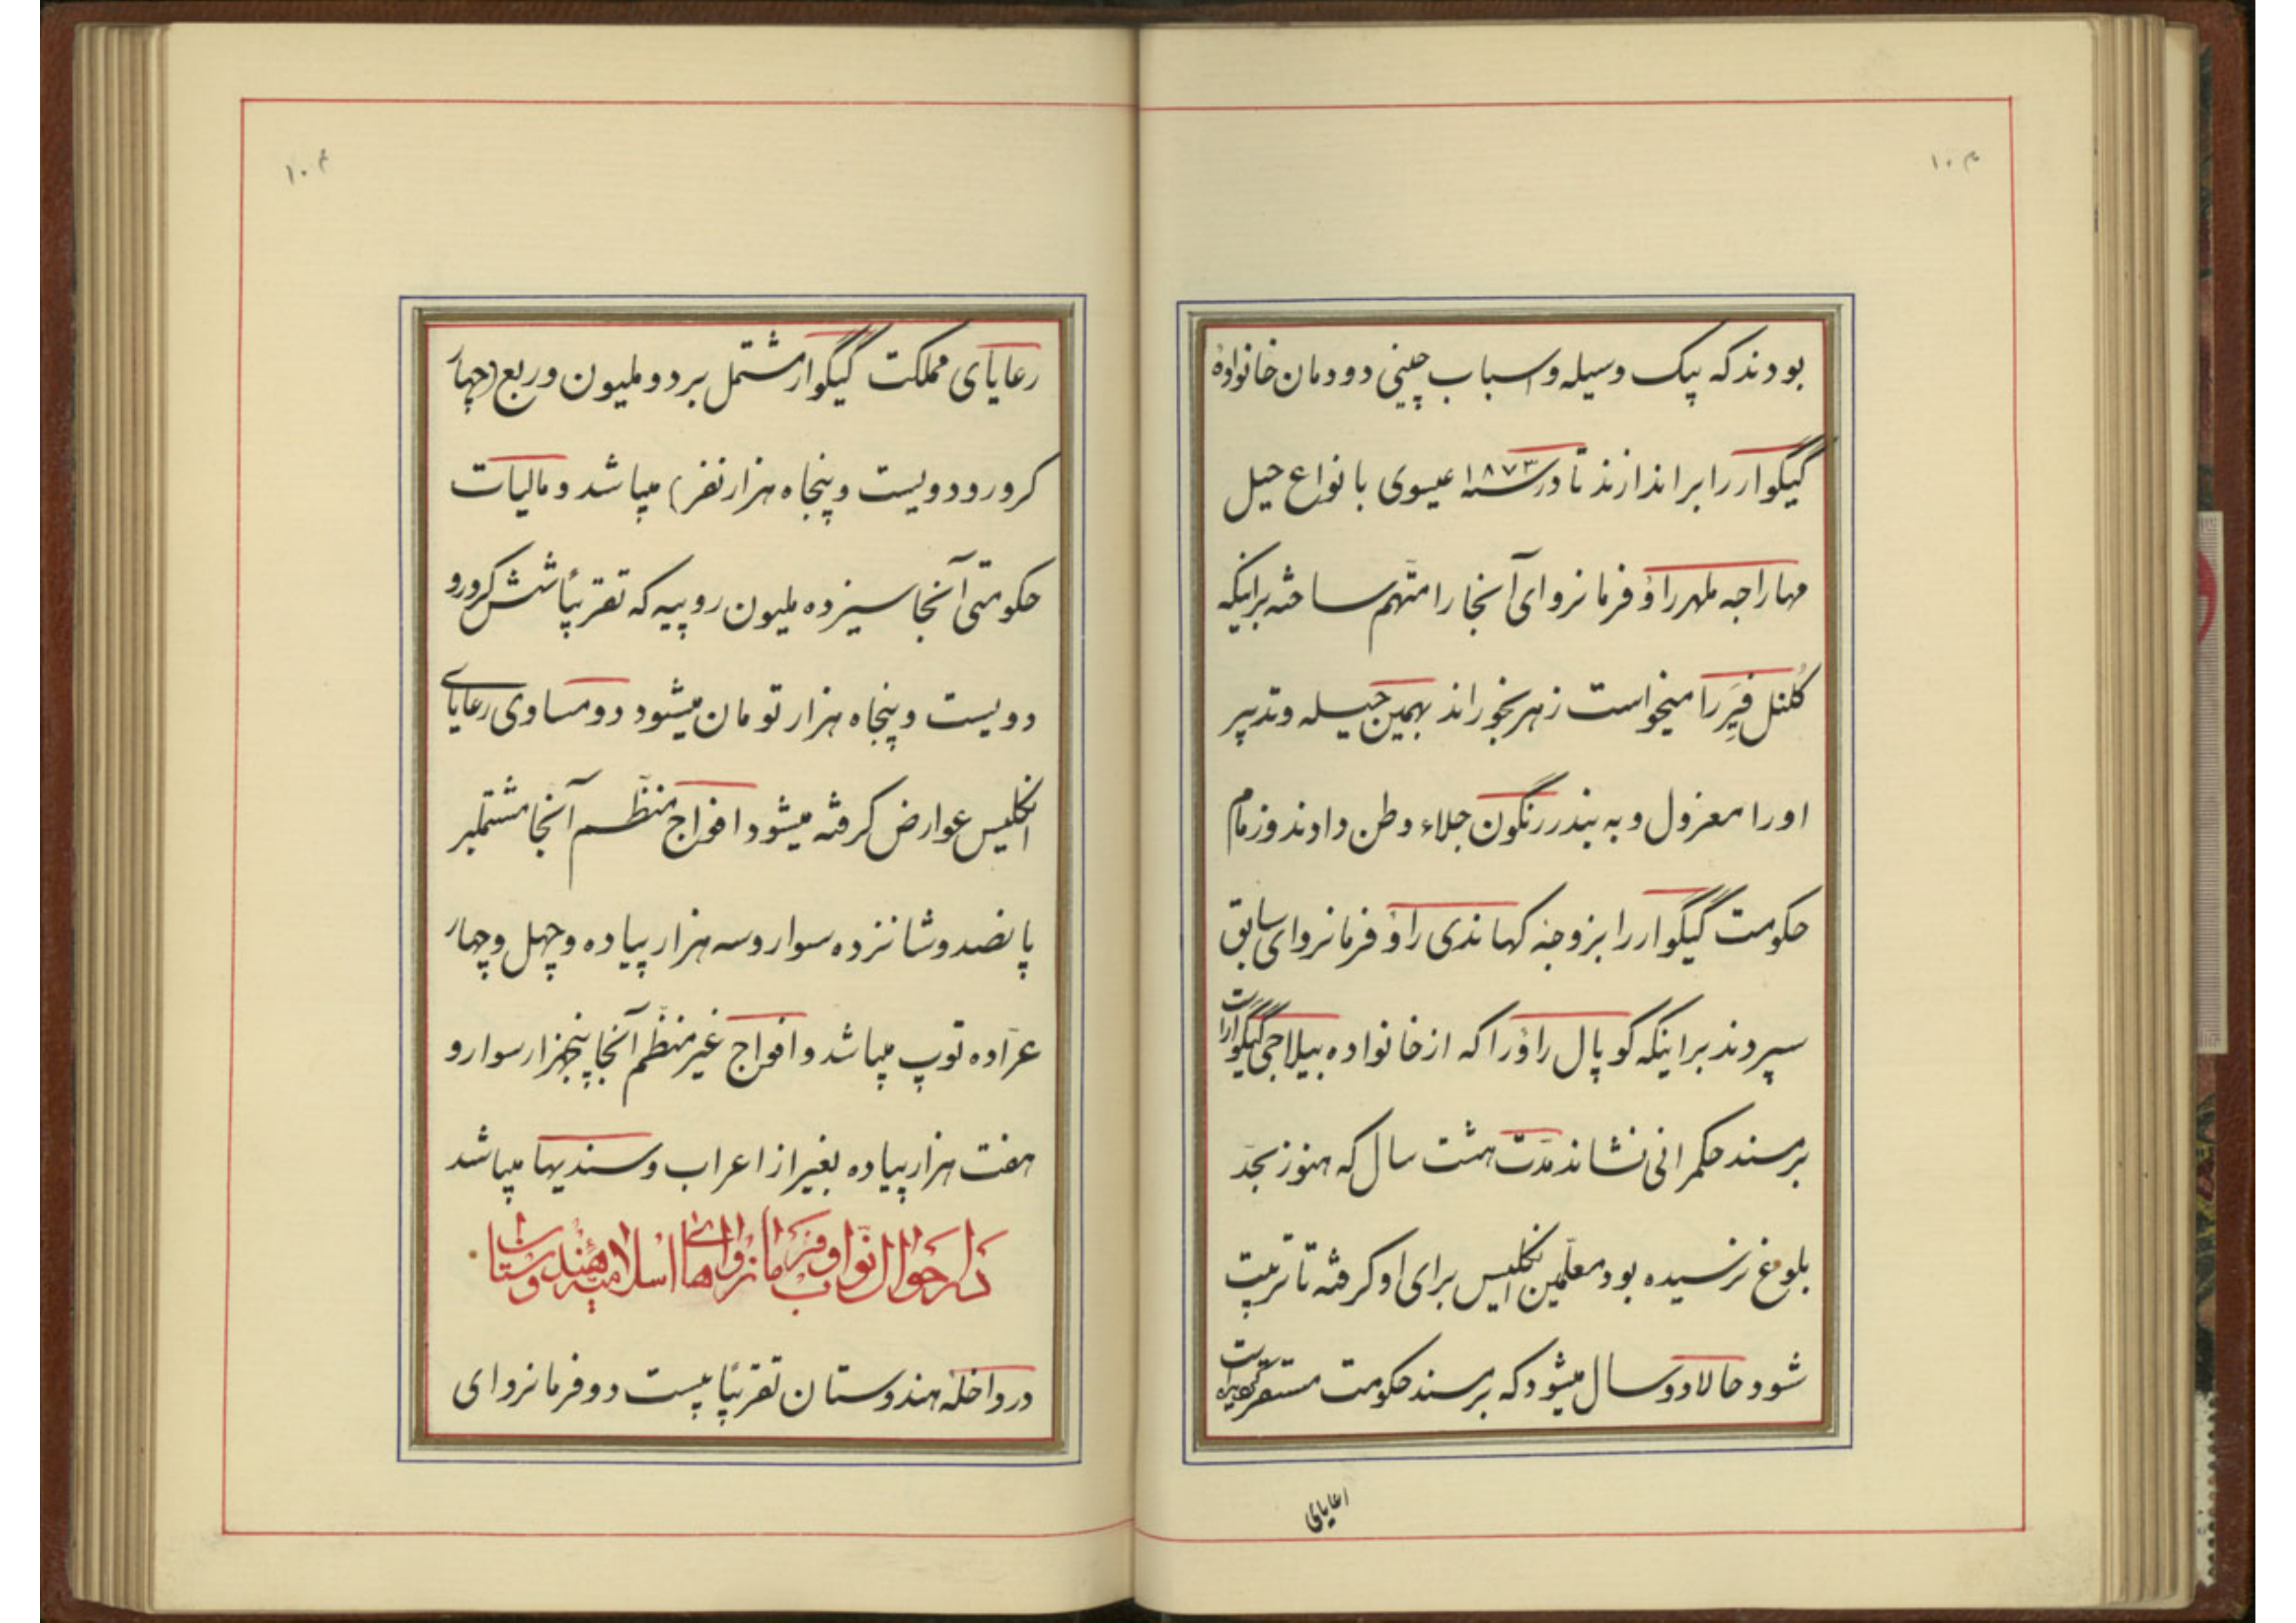 بودند که بیک وسیله و اسباب چینی دودمان خانوادهٔ
گیگوار را براندازند تا در سنه ۱۸۷۳ عیسوی با نواع حیل
مهاراجه ملهر راؤ فرمانروای آنجا را متهم ساخته براینکه
کلنل فیر را میخواست زهر بخوراند بهمین حیله و تدبیر
او را معزول و به بندر رنگون جلاء وطن دادند و زمام
حکومت گیگوار را بزوجه کهاندی راؤ فرمانروای سابق
سپردند براینکه گوپال راؤ را که از خانواده بیلاجی گیگوار است
بر مسند حکمرانی نشاند مدّت هشت سال که هنوز بحدّ
بلوغ نرسیده بود معلّمین انگلیس برای او گرفته تا تربیت
شود حالا دو سال میشود که بر مسند حکومت مستقر گردیده است
رعایای مملکت گیگوار مشتمل بر دو ملیون و ربع (چهار
کرور و دویست و پنجاه هزار نفر) میباشد و مالیات
حکومتی آنجا سیزده ملیون روپیه که تقریباً شش کرور و
دویست و پنجاه هزار تومان میشود دو مساوی رعایای
انگلیس عوارض گرفته میشود افواج منظّم آنجا مشتملبر
پانصد و شانزده سوار و سه هزار پیاده و چهل و چهار
عرّاده توپ میباشد و افواج غیر منظّم آنجا پنجهزار سوار و
هفت هزار پیاده بغیر از اعراب و سندیها میباشد
در احوال نوّاب و فرمانروایهای اسلامیه هندوستان
در داخلهٔ هندوستان تقریباً بیست دو فرمانروای